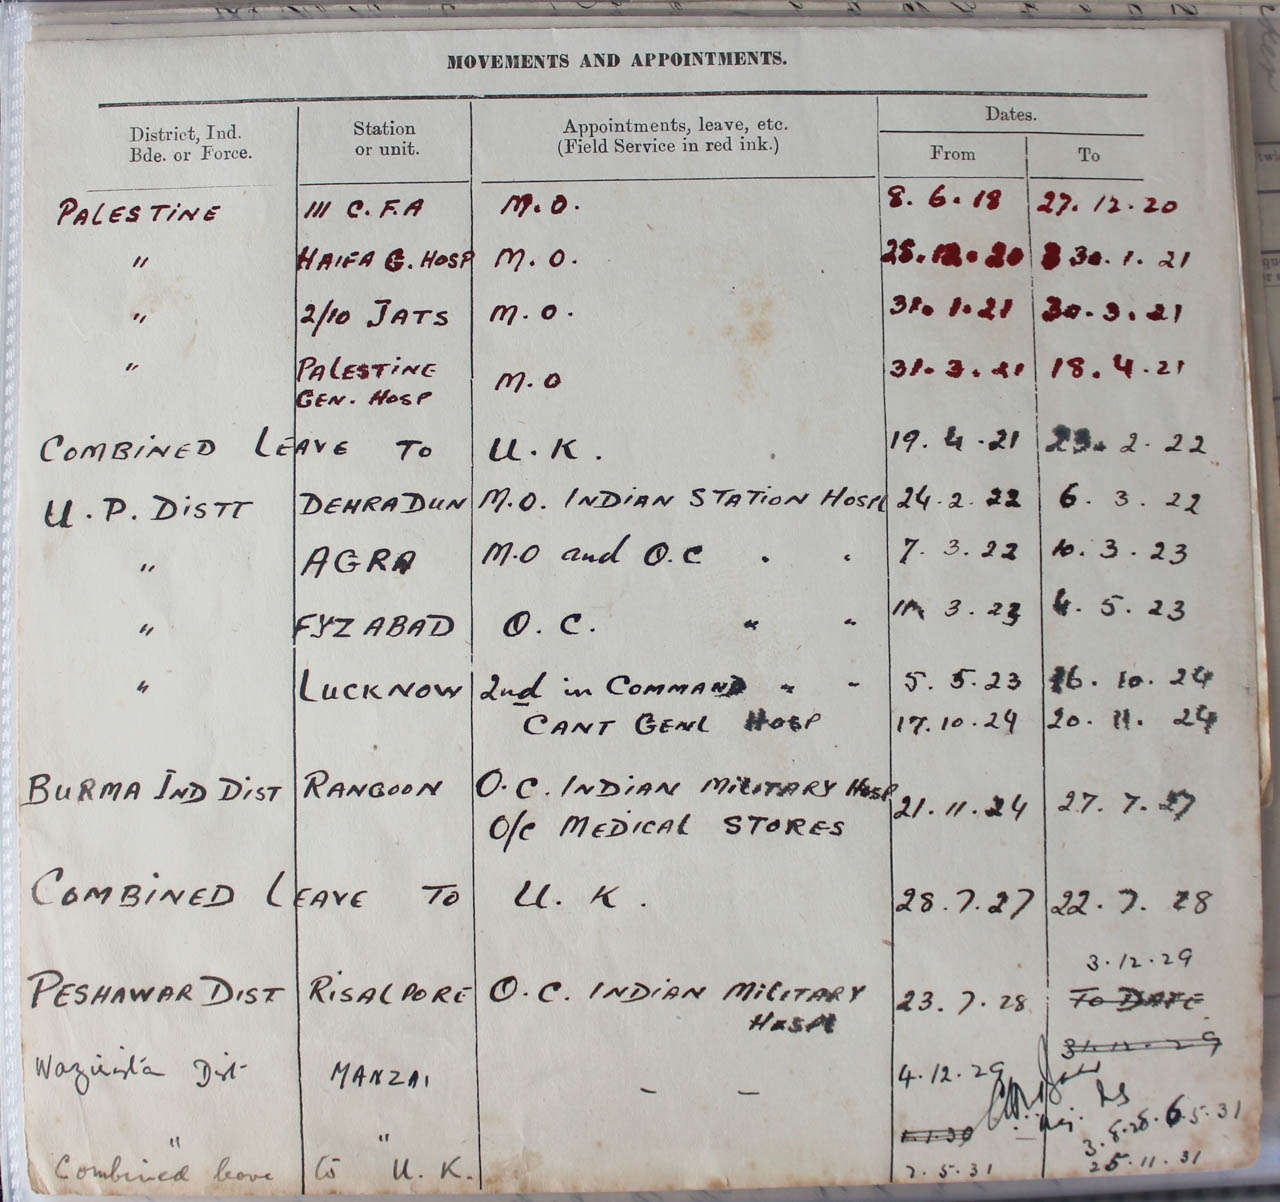 MOVEMENTS AND APPOINTMENTS.
Dates.
District, Ind. Station Appointments, leave, etc.
Bde. or Force. or unit. (Field Service in red ink.) From To
PALESTINE 111 C.F.A M.O. 8.6.18 27.12.20
" HAIFA G. HOSP M.O. 28.12.20 30.1.21
" 2/10 JATS M.O. 31.1.21 30.3.21
" PALESTINE M.O 31.3.21 18.4.21
GEN. HOSP
COMBINED LEAVE TO U.K. 19.4.21 23.2.22
U.P. DISTT DEHRADUN M.O. INDIAN STATION HOSPL 24.2.22 6.3.22
" AGRA M.O and O.C " " 7.3.22 10.3.23
" FYZABAD O.C. " " 11.3.23 4.5.23
" LUCKNOW 2nd in COMMAND " " 5.5.23 16.10.24
CANT GENL HOSP 17.10.24 20.11.24
BURMA IND DIST RANGOON O.C. INDIAN MILITARY HOSP 21.11.24 27.7.27
O/C MEDICAL STORES
COMBINED LEAVE TO U.K. 28.7.27 22.7.28
3.12.29
PESHAWAR DIST RISALPORE O.C. INDIAN MILITARY 23.7.28 TO DATE
HOSPL
31.12.29
Waziristan Dist MANZAI – – 4.12.29
Maj. IMS
" " 1.1.30 3.8.28. 6.5.31
Combined leave to U.K. 7.5.31 25.11.31